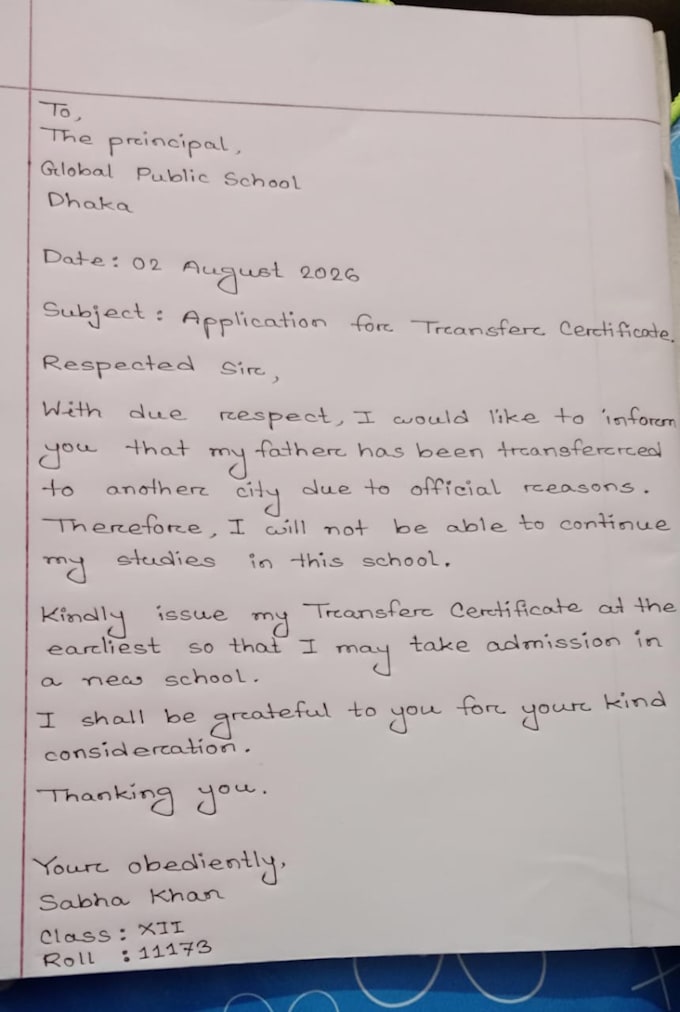 To,
The principal,
Global Public School
Dhaka
Date: 02 August 2026
Subject: Application for Transfer Certificate.
Respected Sir,
With due respect, I would like to inform
you that my father has been transferred
to another city due to official reasons.
Therefore, I will not be able to continue
my studies in this school.
Kindly issue my Transfer Certificate at the
earliest so that I may take admission in
a new school.
I shall be grateful to you for your kind
consideration.
Thanking you.
Your obediently,
Sabha Khan
Class: XII
Roll : 11173